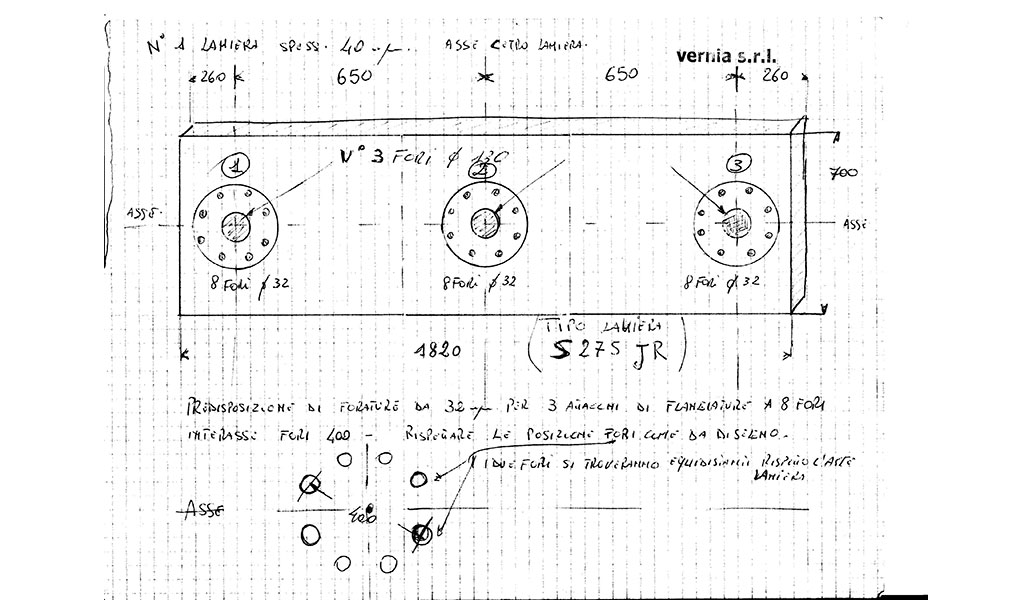 N° 1 LAMIERA SPESS. 40 m/m. ASSE CETRO LAMIERA.
vernia s.r.l.
260 650 650 260
N° 3 FORI ϕ 130
1 2 3
700
ASSE. ASSE
8 FORI ϕ 32 8 FORI ϕ 32 8 FORI ϕ 32
1820
(TIPO LAMIERA
S 275 JR)
PREDISPOSIZIONE DI FORATURE DA 32 m/m PER 3 ATTACCHI DI FLANGIATURE A 8 FORI
INTERASSE FORI 400 - RISPETTARE LE POSIZIONE FORI COME DA DISEGNO.
I DUE FORI SI TROVERANNO EQUIDISTANTI RISPETTO L'ASSE
LAMIERA
ASSE 400